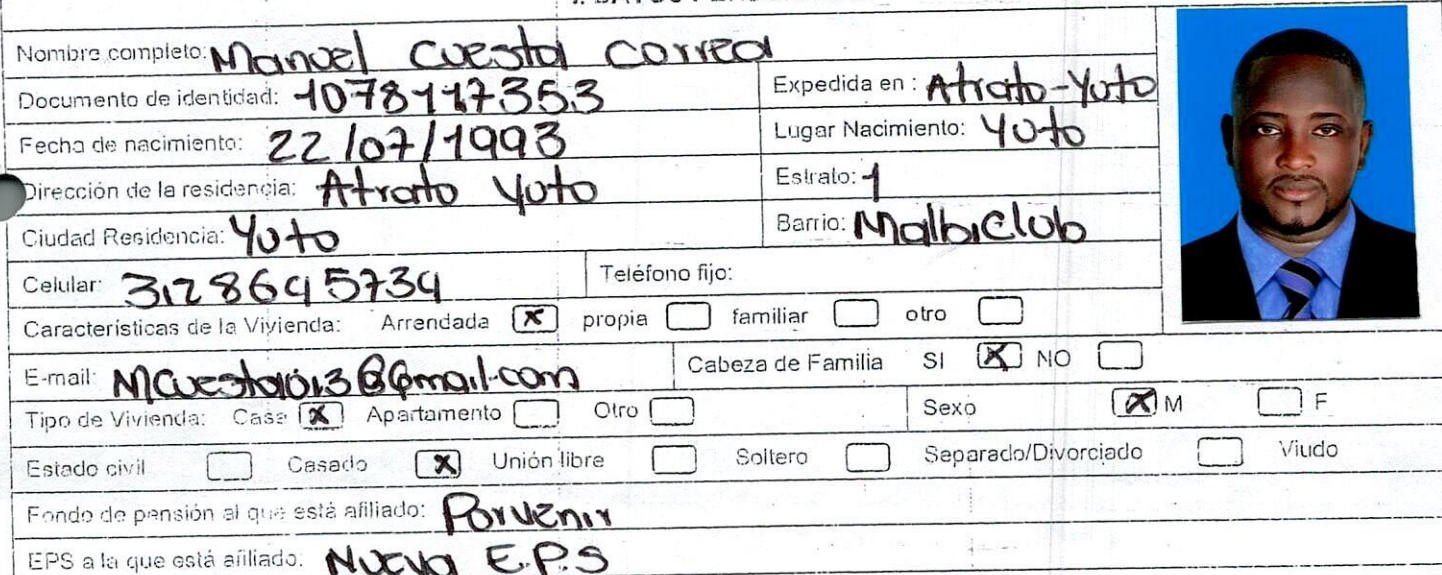 Nombre completo: Manuel Cuesta Correa
Documento de identidad: 1078117353 Expedida en : Atrato-Yuto
Fecha de nacimiento: 22/07/1993 Lugar Nacimiento: Yuto
Dirección de la residencia: Atrato Yuto Estrato: 1
Ciudad Residencia: Yuto Barrio: Malbiclub
Celular: Teléfono fijo:
Características de la Vivienda: Arrendada X propia familiar otro
E-mail: Cabeza de Familia SI X NO
Tipo de Vivienda: Casa X Apartamento Otro Sexo X M F
Estado civil Casado X Unión libre Soltero Separado/Divorciado Viudo
Fondo de pensión al que está afiliado: Porvenir
EPS a la que está afiliado: Nueva E.P.S